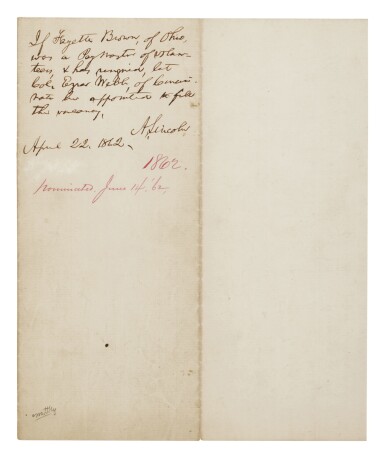 If Fayette Brown, of Ohio,
was a Paymaster of volun-
teers, & has resigned, let
Ezra Webb, of Cincin-
nati be appointed to fill
the vacancy.
A. Lincoln
April 22, 1862.
1862.
Nominated, June 14, '62.